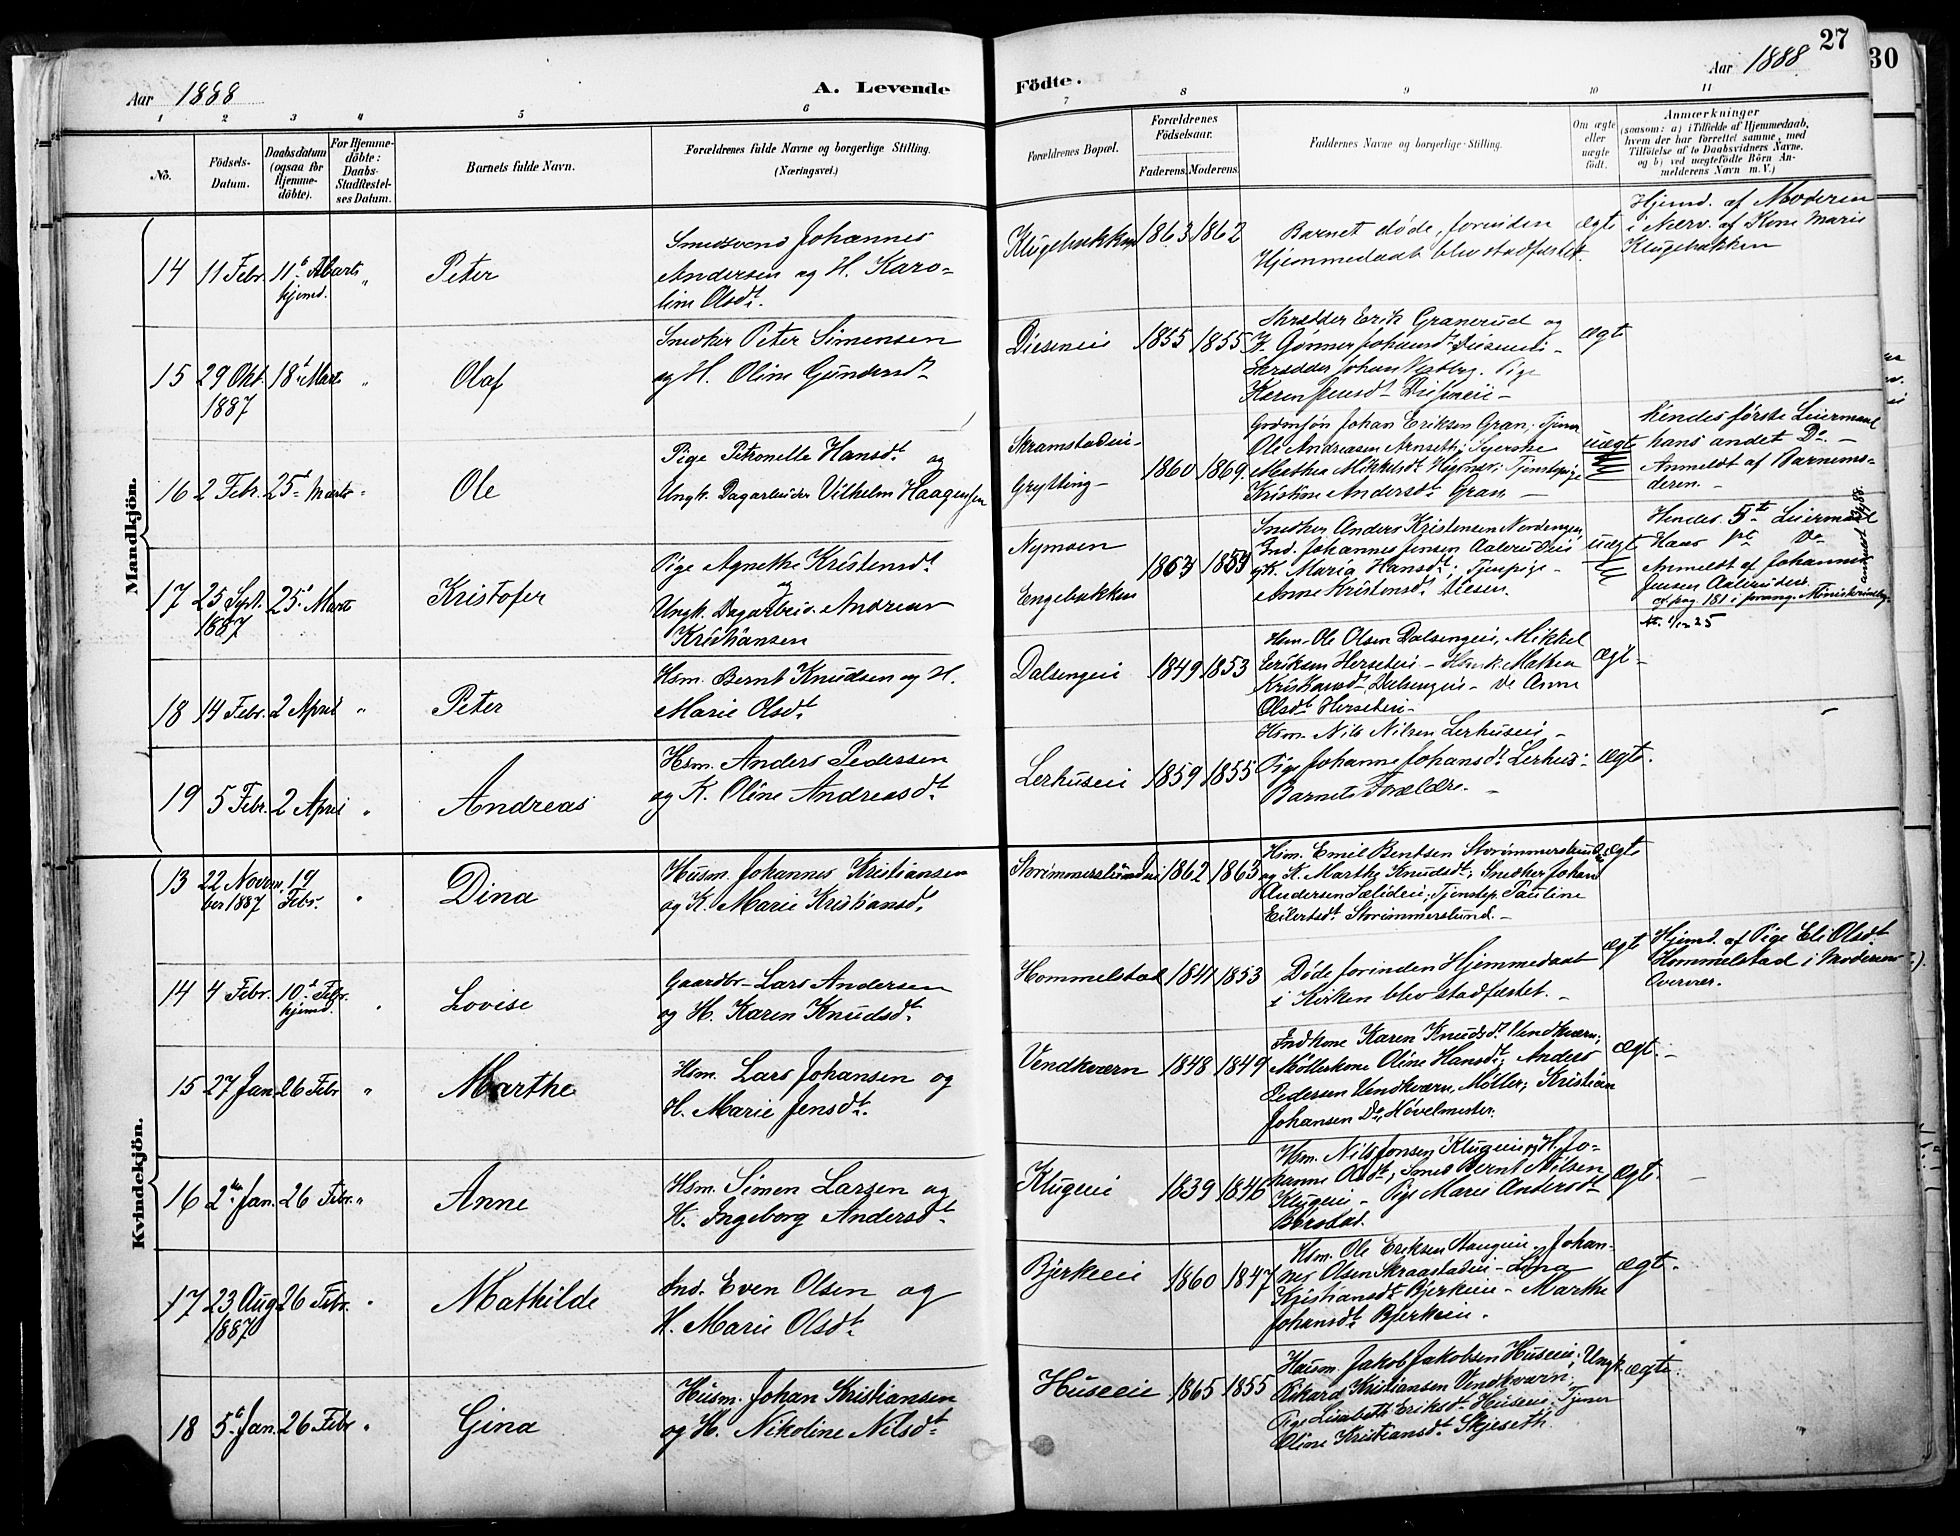 Aar 1888
A. Levende
Födte.
Aar 1888
27
30
1 2 3 4 5 6 7 8 9 10 11
No.
Födsels-
Datum.
Daabsdatum
(ogsaa for
Hjemme-
döbte).
For Hjemme-
döbte:
Daabs-
Stadfæstel-
ses Datum.
Barnets fulde Navn.
Forældrenes fulde Navne og borgerlige Stilling.
(Næringsvei.)
Forældrenes Bopæl.
Forældrenes
Födselsaar.
Faderens.
Moderens.
Faddernes Navne og borgerlige Stilling.
Om ægte
eller
uægte
födt.
Anmærkninger
(saasom: a) i Tilfælde af Hjemmedaab,
hvem der har forrettet samme, med
Tilföielse af to Daabsvidners Navne.
og b) ved uægtefödte Börn An-
melderens Navn m. V.)
Mandkjön.
14 11 Febr. 11 Marts hjemd. " Peter
Smedsvend Johannes
Andersen og H. Karo-
line Olsdt.
Klugebakken 1863 1862
Barnet døde, forinden
Hjemmedaab blev stadfæstet.
ægte
Hjemd. af Moderen
i Nærv. af Kone Marie
Klugebakken
15 29 Okt. 1887 18 Marts " Olaf
Snedker Peter Simensen
og H. Oline Gundersdt
Dieseneie 1855 1855
Skrædder Erik Granerud og
K. Gønner Johansdt Dieseneie -
Skrædder Johan Vestby. Pige
Karen Jensdt Dieseneie -
ægte
16 2 Febr. 25 Marts " Ole
Pige Petronelle Hansdt. og
Ungk. Dagarbeider Vilhelm Haagensen
Skramstadeie -
Grytting -
1860 1869
Johan Eriksen Gran; Tjener
Ole Andreasen Arnseth;
Mathea Mikkelsdt. Tjenstepige
Kristine Andersdt. Gran -
uægte
hendes første Leiermaal
hans andet Do. -
Anmeldt af Barnemo-
deren. -
17 25 Sept. 1887 25 Marts Kristofer
Pige Agnethe Kristensdt.
og
Ungk. Dagarbeid. Andreas
Kristiansen
Nymoen
Engebakken
1863 1854
Snedker Anders Kristensen Nordengen
Ind. Johannes Jensen Aalerudeie
og K. Maria Hansdt; Tjenepige -
Anne Kristensdt. Diesen.
uægte
Hendes 5te Leiermaal
Hans Do
Anmeldt af Johannes
Jensen Aalerudeie.
cf. pag. 181 i
18 14 Febr. 2 April " Peter
Hsm. Bernt Knudsen og H.
Marie Olsdt.
Dalsengeie 1849 1853
Hsm. Ole Olsen Dalsengeie, Mikkel
Eriksen Herseteie - Hsmk. Mathea
Kristiansdt. Dalsengeie - Anne
Olsdt. Herseteie -
ægte -
19 5 Febr. 2 April " Andreas
Hsm. Anders Pedersen
og K. Oline Andreasdt.
Lerhuseie 1859 1855
Hsm. Nils Nilsen Lerhuseie -
Pige Johanne Johansdt. Lerhus -
Barnets Forældre. -
ægte.
Kvindekjön.
13 22 Novem-
ber 1887 19
Febr. " Dina
Husm. Johannes Kristiansen
og K. Marie Kristiansdt.
Storimmerslundeie 1862 1863
Hsm. Emil Bentsen Storimmerslundeie
og K. Marthe Knudsdt; Snedker Johan
Andersen Sælideie; Tjenstep. Pauline
Eilertsdt. Storimmerslund. -
ægte
14 4 Febr. 10 Febr. hjemd. " Lovise
Gaardbr. Lars Andersen
og H. Karen Knudsdt.
Hommelstad 1841 1853
Døde forinden Hjemmedaab
i Kirken blev stadfæstet. -
ægte
Hjemd. af Pige Eli Olsdt.
Hommelstad i Moderens
Overvær.
15 27 Jan. 26 Febr. " Marthe
Hsm. Lars Johansen og
H. Marie Jensdt.
Vendkværn 1848 1849
Indkone Karen Knudsdt. Vendkværn;
Møllerkone Oline Hansdt; Anders
Pedersen Vendkværn, Møller; Kristian
Johansen Do, Høvelmester.
ægt. -
16 2den Jan. 26 Febr. " Anne
Hsm. Simen Larsen og
H. Ingeborg Andersdt.
Klugeeie 1839 1846
Hsm. Nils Jonsen Klugeeie og H. Jo-
hanne Olsdt; Smed Bernt Nilsen
Klugeeie - Pige Marie Andersdt
Børstad.
ægt. -
17 23 Aug. 1887 26 Febr. " Mathilde
Ind. Even Olsen og
H. Marie Olsdt.
Bjerkeeie 1860 1847
Hsm. Ole Eriksen Stangeeie, Johan-
nes Olsen Skraastadeie - Lina
Kristiansdt. Bjerkeeie - Marthe
Johansdt. Bjerkeeie.
ægt.
18 5 Jan. 26 Febr. " Gina
Husm. Johan Kristiansen
og H. Nikoline Nilsdt.
Huseeie 1865 1855
Husm. Jakob Jakobsen Huseeie; Ungk.
Rikard Kristiansen Vendkværn;
Pige Lisabeth Eriksdt. Huseeie; Tjener
Oline Kristiansdt. Skjeseth.
ægte.